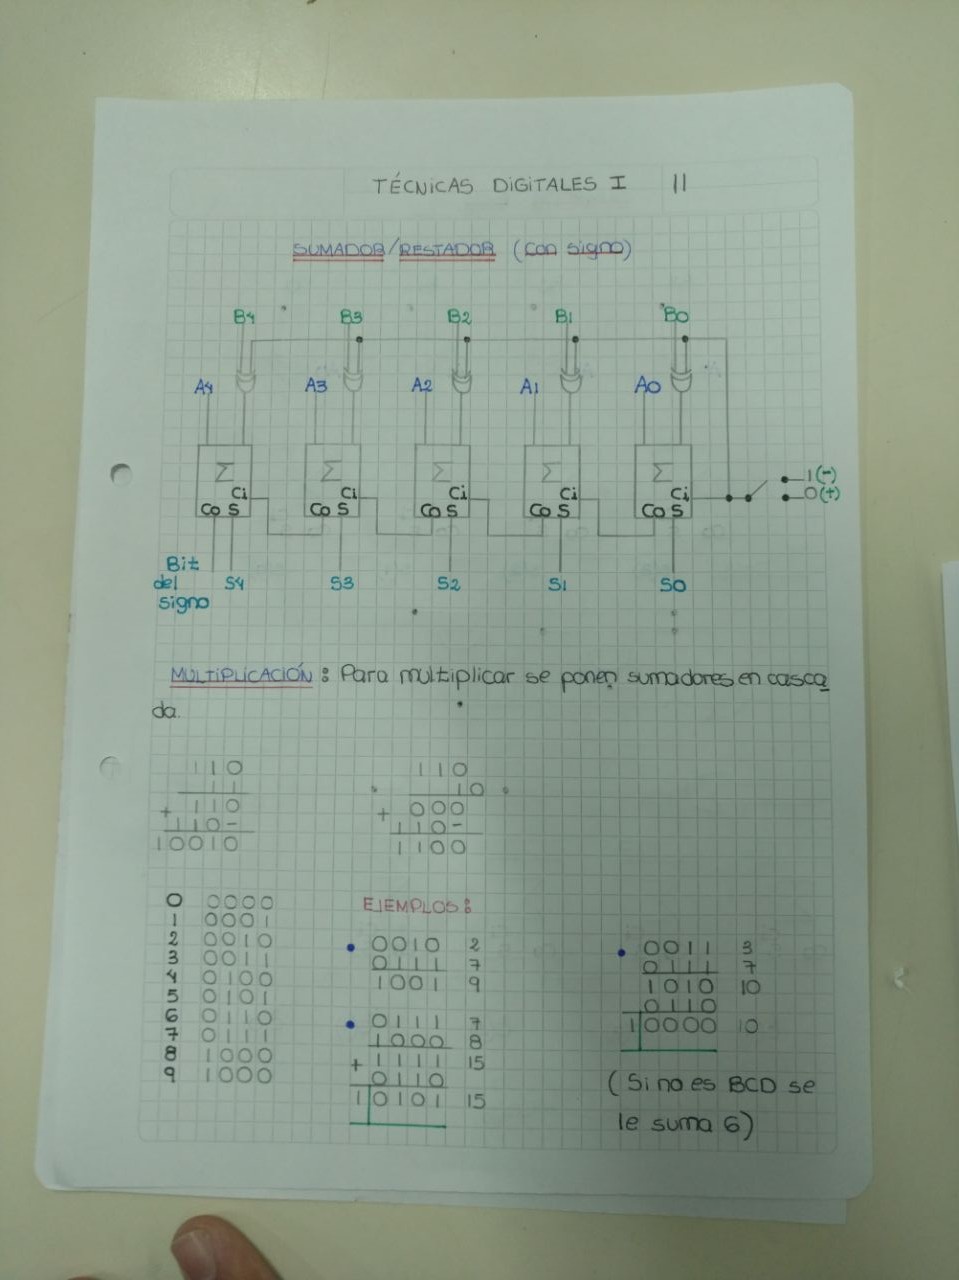 TÉCNICAS DIGITALES I 11
SUMADOR/RESTADOR (con signo)
B4 B3 B2 B1 B0
A4 A3 A2 A1 A0
Σ Σ Σ Σ Σ
Ci Ci Ci Ci Ci
Co S Co S Co S Co S Co S
1(-)
0(+)
Bit
del S4 S3 S2 S1 S0
signo
MULTIPLICACIÓN: Para multiplicar se ponen sumadores en casca
da.
110
11
+ 110
110-
10010
110
10
+ 000
110-
1100
0 0000
1 0001
2 0010
3 0011
4 0100
5 0101
6 0110
7 0111
8 1000
9 1000
EJEMPLOS:
• 0010 2
0111 7
1001 9
• 0111 7
1000 8
+ 1111 15
0110
1 0101 15
• 0011 3
0111 7
1010 10
0110
1 0000 10
(Si no es BCD se
le suma 6)